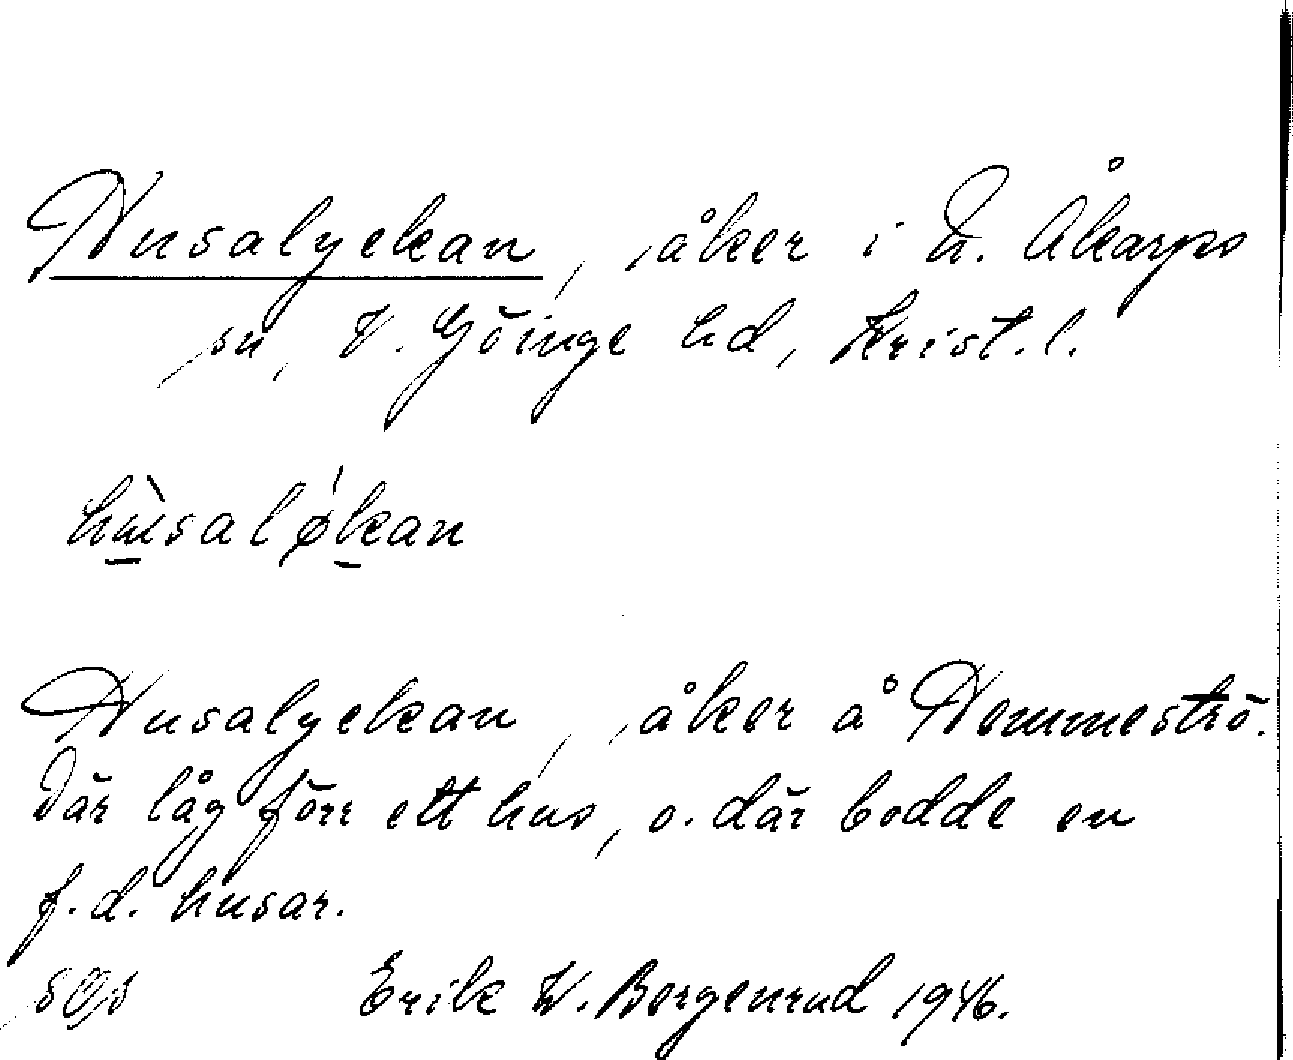 Husalyckan, åker i N. Åkarps
sn, V. Göinge hd, Krist. l.
Husalyckan, åker å Hemmeströ.
Där låg förr ett hus, o. där bodde en
f.d. husar.
Erik W. Bergenrud 1946.